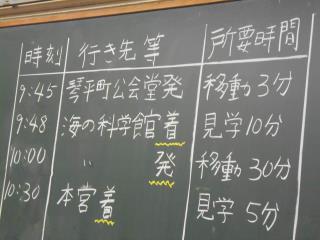 時刻 行き先等 所要時間
9:45 琴平町公会堂発 移動3分
9:48 海の科学館着 見学10分
10:00 〃 発 移動30分
10:30 本宮着 見学5分